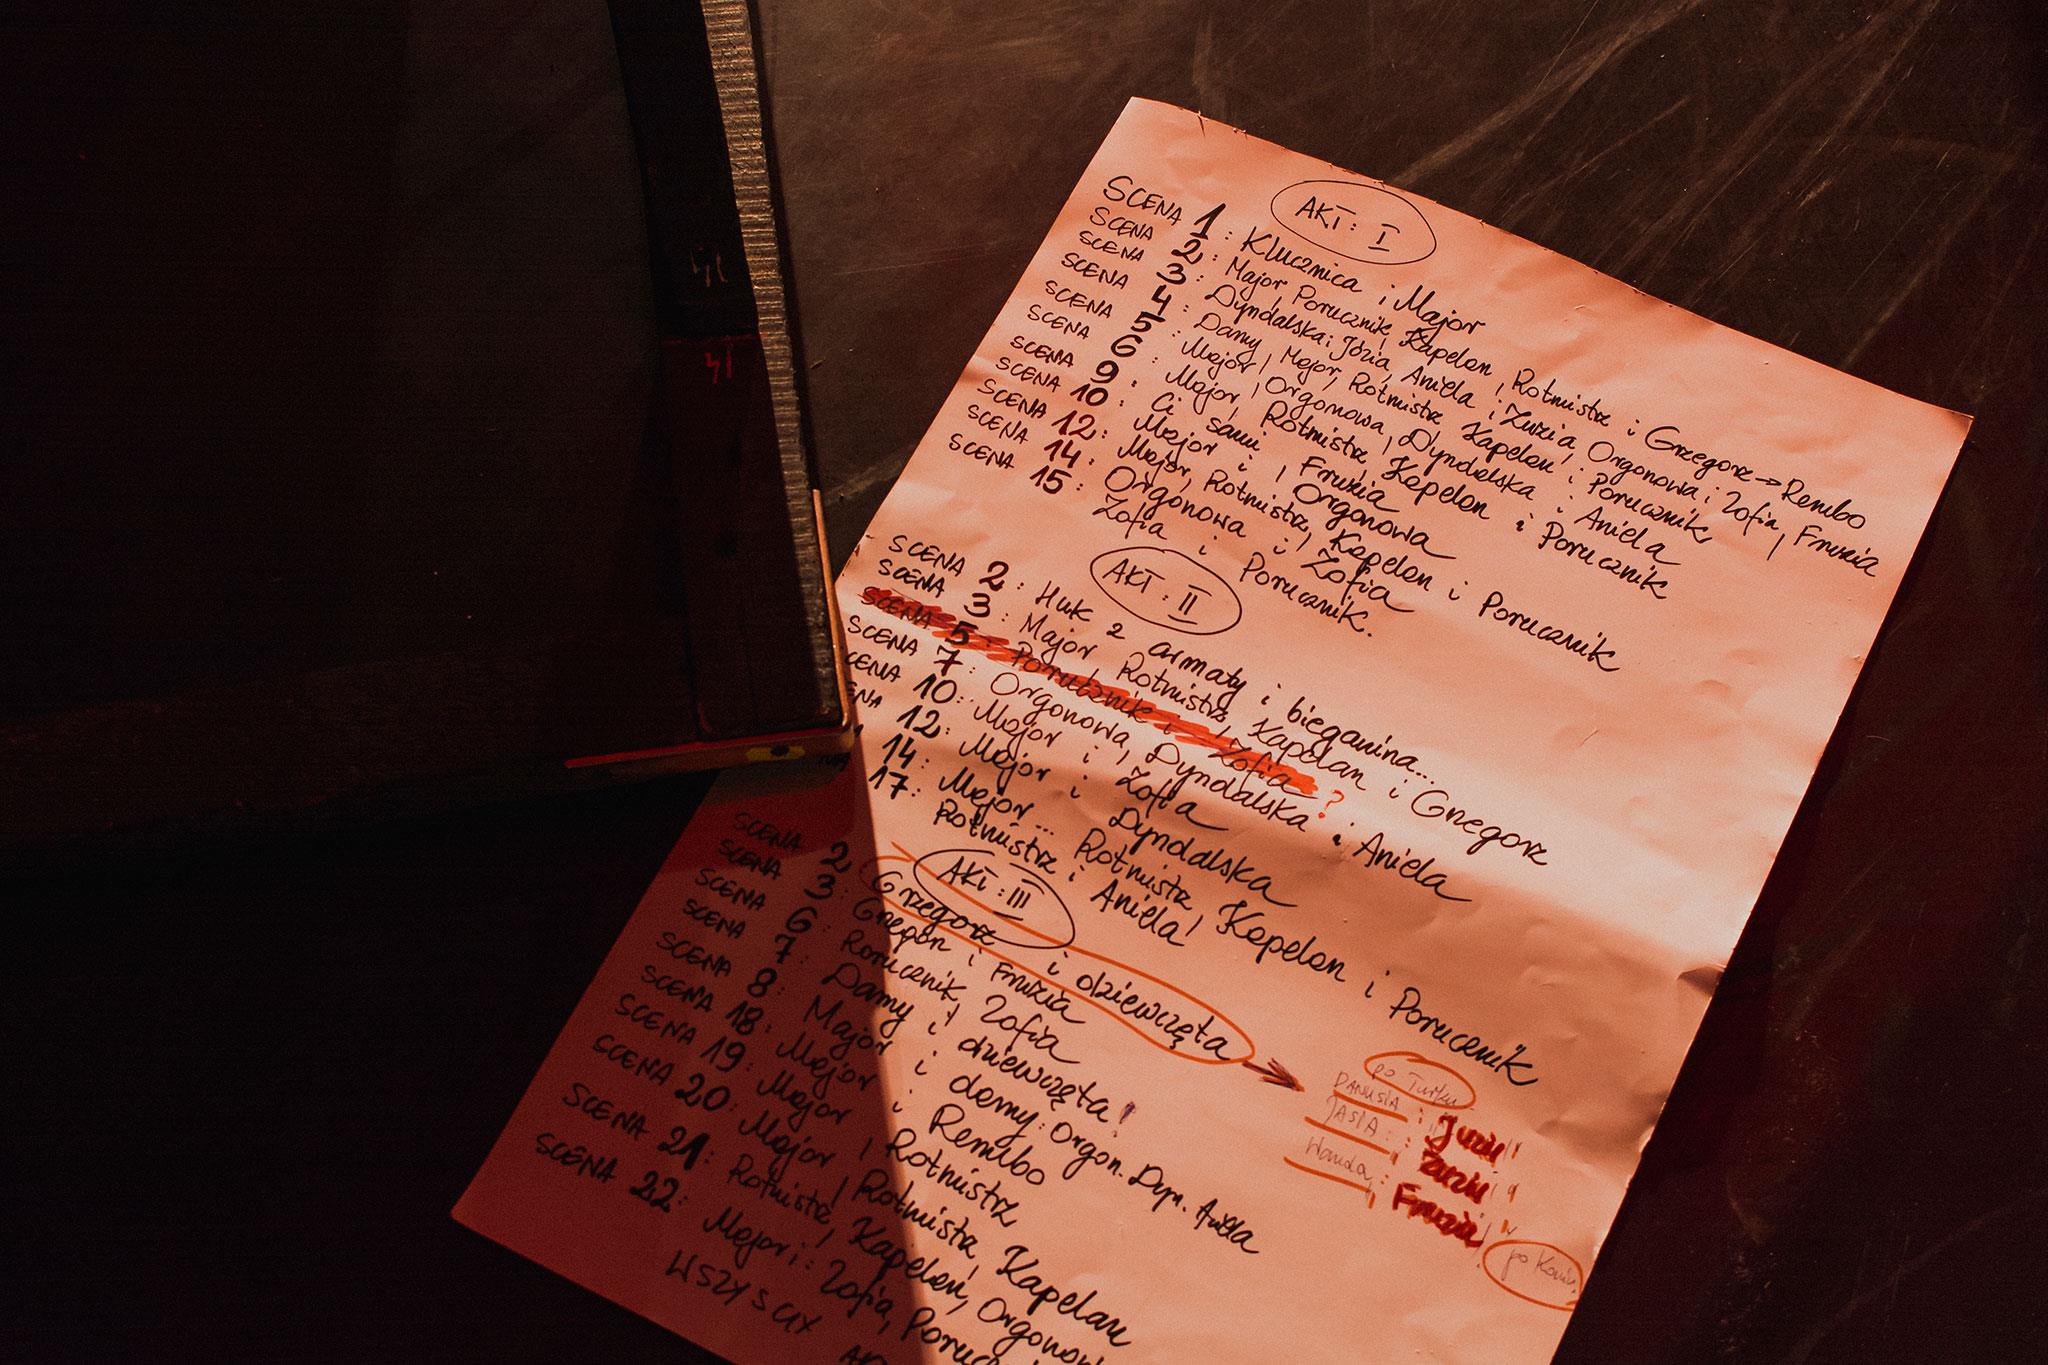 AKT: I
SCENA 1: Klucznica i Major
SCENA 2: Major Porucznik, Kapelan, Rotmistrz i Grzegorz → Rembo
SCENA 3: Dyndalska, Józia, Aniela i Zuzia, Orgonowa i Zofia, Fruzia
SCENA 4: Damy, Major, Rotmistrz Kapelan i Porucznik
SCENA 5: Major, Orgonowa, Dyndalska i Aniela
SCENA 6: Major, Rotmistrz, Kapelan i Porucznik
SCENA 9: Ci sami, Fruzia
SCENA 10: Major i Orgonowa
SCENA 12: Major, Rotmistrz, Kapelan i Porucznik
SCENA 14: Orgonowa i Zofia
SCENA 15: Zofia i Porucznik.
AKT: II
SCENA 2: Huk 2 armaty i bieganina...
SCENA 3: Major Rotmistrz, Kapelan i Grzegorz
SCENA 5: Porucznik i Zofia ?
SCENA 7: Orgonowa, Dyndalska i Aniela
CENA 10: Major i Zofia
ENA 12: Major i Dyndalska
14: Major... Rotmistrz, Kapelan i Porucznik
17: Rotmistrz i Aniela
AKT: III
SCENA 2 Grzegorz i dziewczęta →
po Turku
DANUSIA: "Józia"
JASIA: "Zuzia"
Wanda: "Fruzia"
SCENA 3: Grzegorz i Fruzia
SCENA 6: Porucznik, Zofia
SCENA 7: Damy i dziewczęta!
SCENA 8: Major i damy: Orgon. Dyn. Aniela
SCENA 18: Major i Rembo
SCENA 19: Major, Rotmistrz
SCENA 20: Major, Rotmistrz, Kapelan
SCENA 21: Rotmistrz, Kapelan, Orgonow
SCENA 22: Major i Zofia, Poruc
WSZYSCY